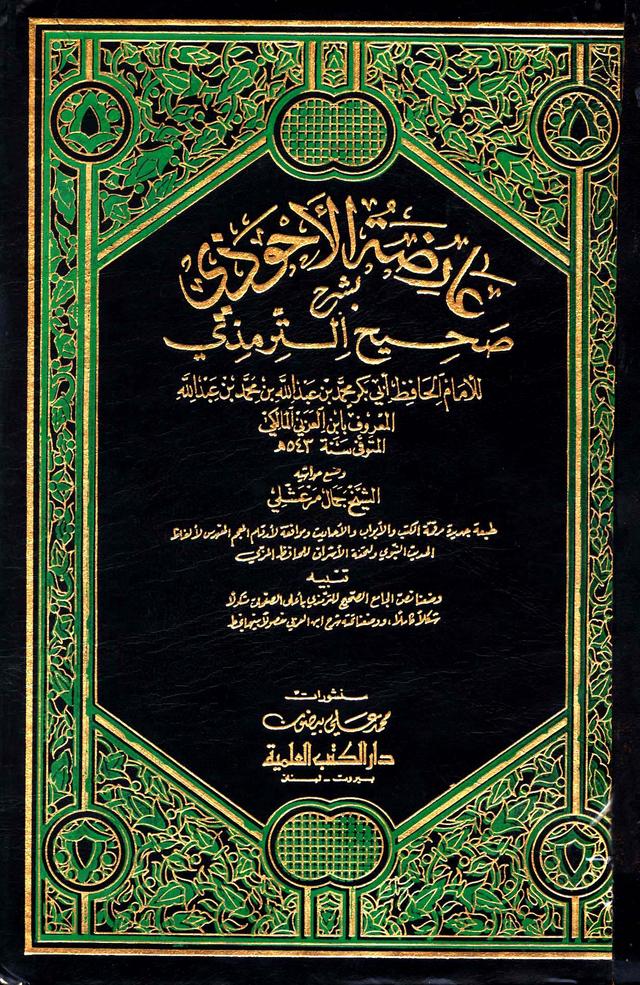 عَارِضَةُ الأَحْوَذِي
بشرح
صَحِيح التِّرمِذِيّ
للإمَام الحَافِظ أَبِي بَكر محمّد بن عَبدالله بن محمَّد بْن عَبْدالله
المعروف بابن العَرَبي المَالِكيّ
المتوفى سَنَة ٥٤٣هـ
وضع حواشيه
الشيّخ جمال مَرعَشلي
طبعة جديدة مرقمة الكتب والأبواب والأحاديث وموافقة لأرقام المعجم المفهرس لألفاظ
الحديث النبوي ولتحفة الأشراف للحافظ المزي
تنبيه
وضعنا نصّ الجامع الصحيح للترمذي بأعلى الصفحات مشكولاً
شكلاً كاملاً، ووضعنا تحته شرح ابن العربي مفصولاً بينهما بخط
منشورات
محمد علي بيضون
دار الكتب العلمية
بيروت - لبنان